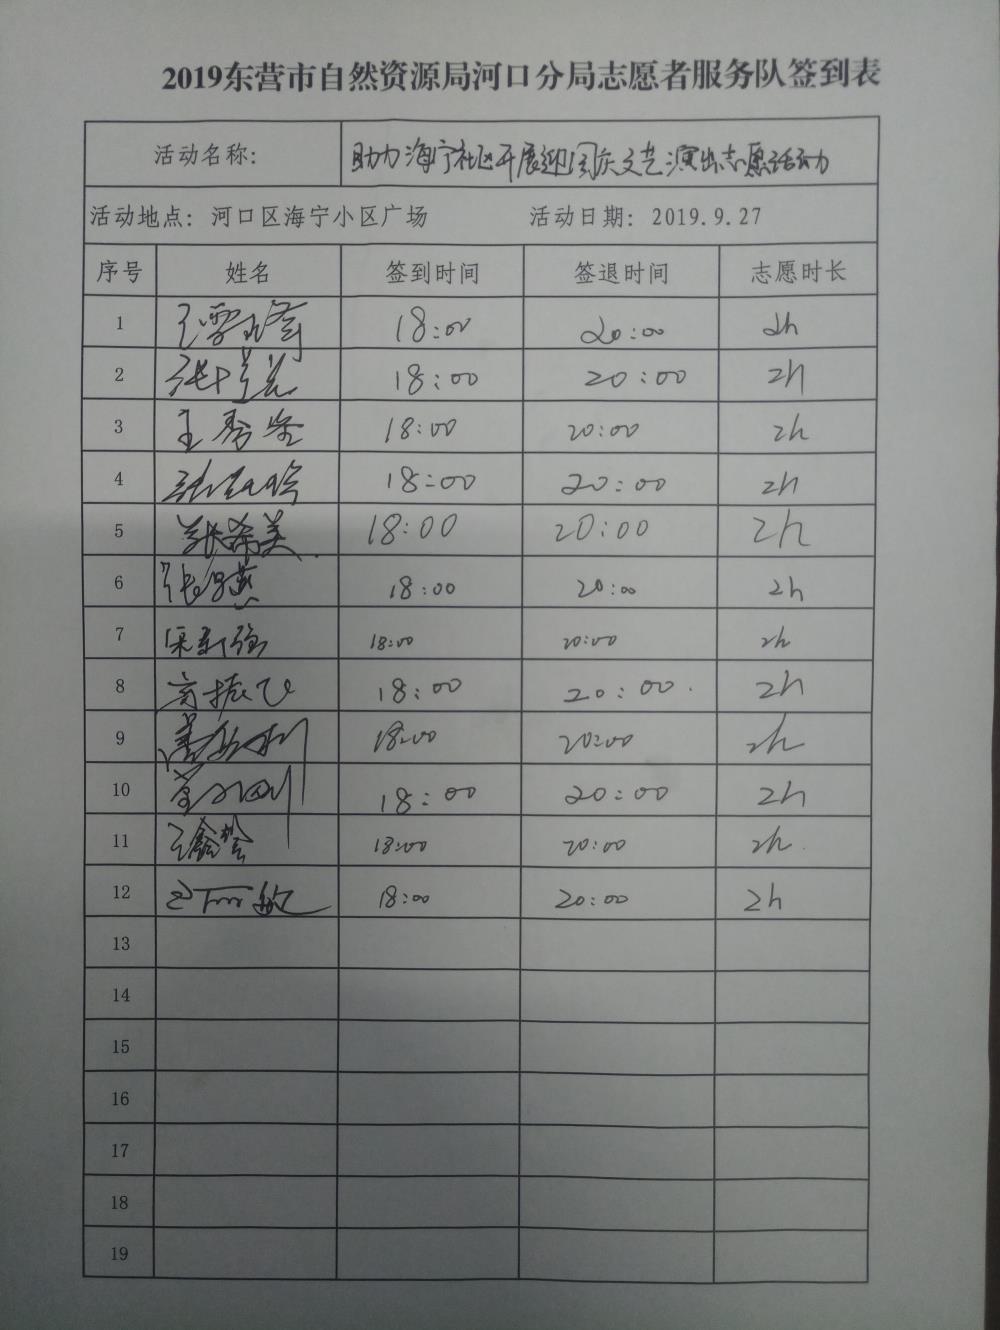 2019东营市自然资源局河口分局志愿者服务队签到表
活动名称: 助力海宁社区开展迎国庆文艺演出志愿活动
活动地点: 河口区海宁小区广场 活动日期: 2019.9.27
序号 姓名 签到时间 签退时间 志愿时长
1 18:00 20:00 2h
2 18:00 20:00 2h
3 王秀 18:00 20:00 2h
4 18:00 20:00 2h
5 张希美 18:00 20:00 2h
6 张 燕 18:00 20:00 2h
7 18:00 20:00 2h
8 高振飞 18:00 20:00 2h
9 18:00 20:00 2h
10 18:00 20:00 2h
11 18:00 20:00 2h
12 18:00 20:00 2h
13
14
15
16
17
18
19